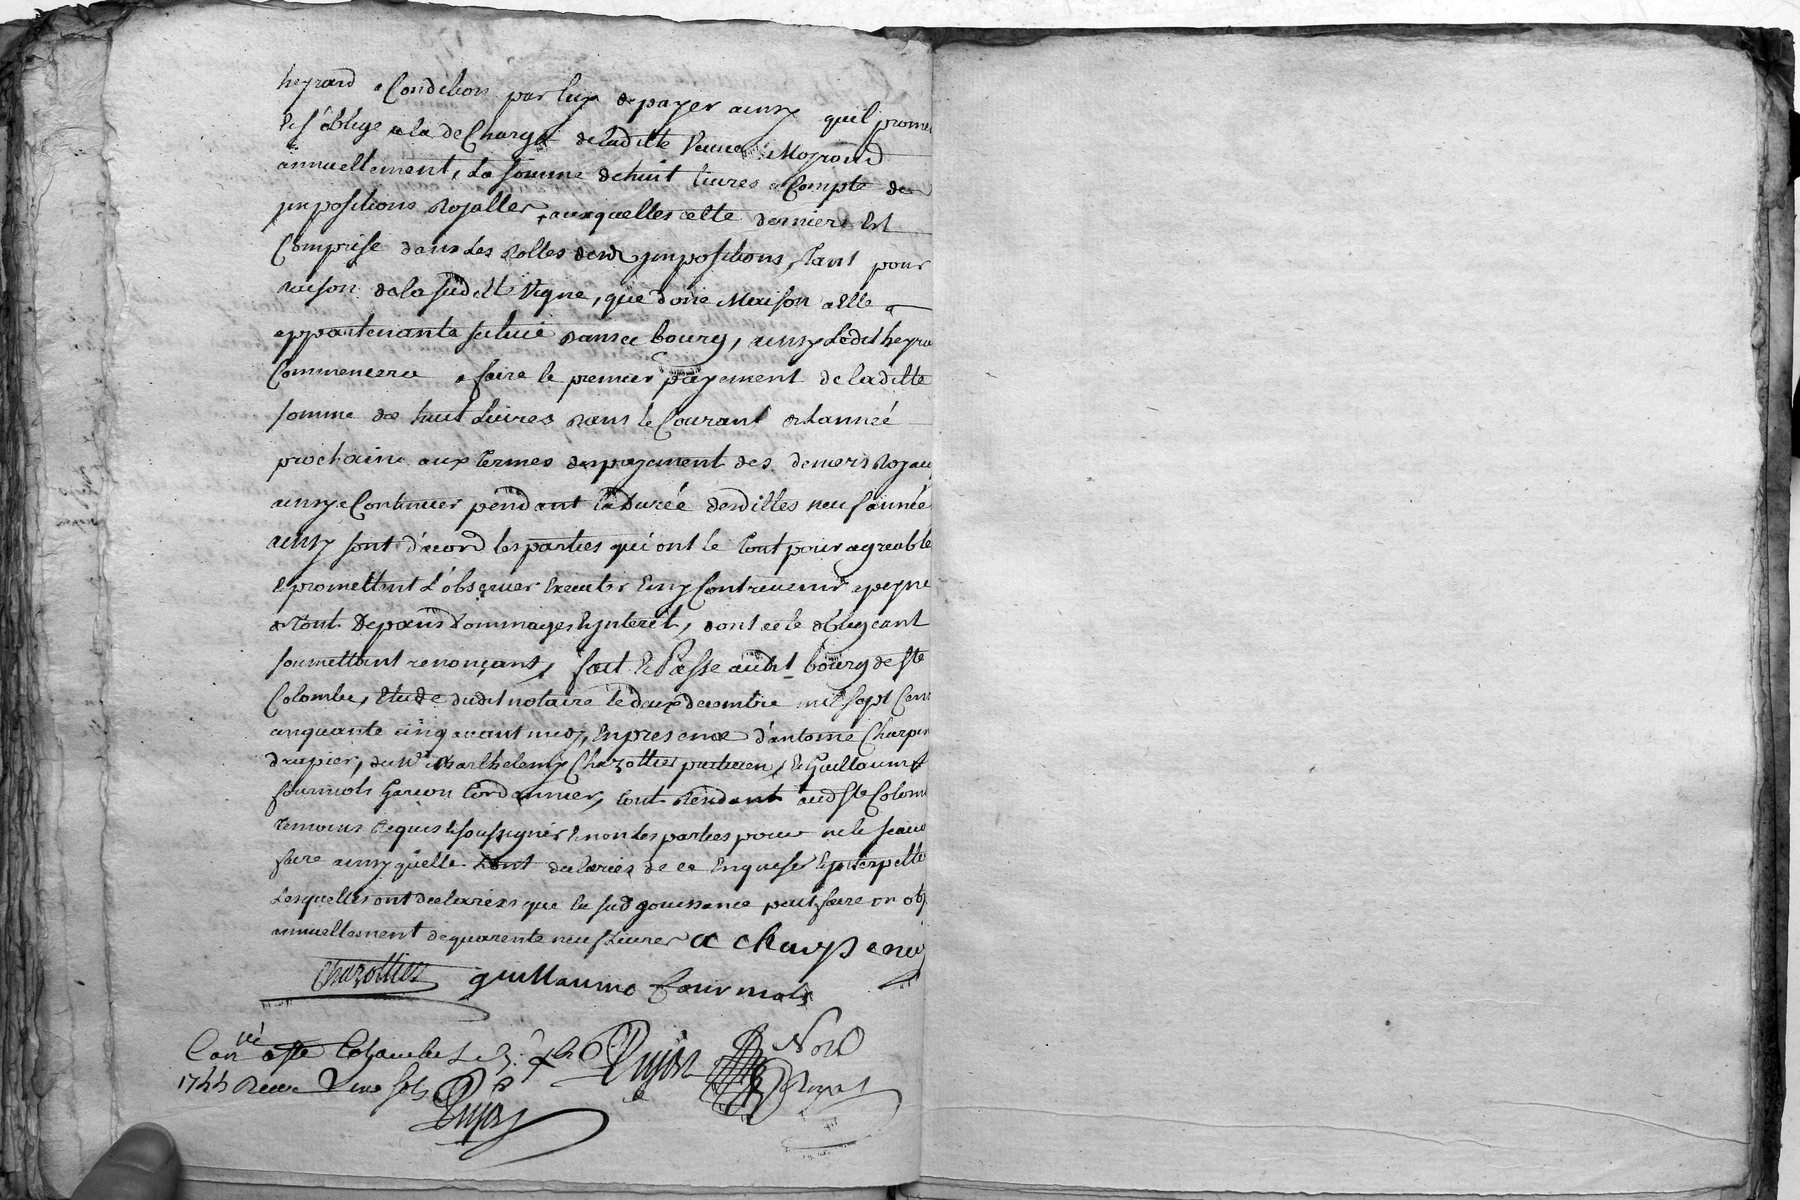 heyrard a Condition par luy de payer ainsy quil prome
Et s'oblige a la deCharge de laditte Veuve Moyroud
annuellement, La somme de huit livres a Compte des
jmpositions Royalles, auxquelles cette derniere Est
Comprise dans Les Rolles desd jmpositions, tant pour
raison de la susditte Vigne, que d'une Maison a Elle
appartenante scituée dans ce bourg, ainsy Ledit heyra
Commencera a faire le premier payement de laditte
somme de huit Livres dans le Courant de Lannée
prochaine aux termes de payement des deniers Royau
ainsy a Continuer pendant la durée desdittes neuf année
ainsy sont d'acord les parties qui ont le tout pour agreable
Et promettent L'observer Executer Et ny Contrevenir a peyne
de tout Depans Dommages Et jnterêt, dont ce le obligeant
soumettant renonçant, fait Et Passé audit bourg de Ste
Colombe, Etude dudit notaire le deux decembre mil sept Cent
cinquante cinq avant midy, En presence d'antoine Charpen
drapier, de Mr Barthelemy Chazottier praticien, Et Guillaume
fourmols Garçon Cordonnier, tout Residant aud Ste Colom
temoins Requis Et soussignés Et non Les parties pour ne le scavo
faire ainsy quelle Lont declarées de ce Enquise Et jnterpellé
Lesquelles ont declarées que la sud jouissance peut faire on obj
annuellement de quarente neuf Livres a charpenay
Chazottier guillaume fourmols
Conlé a Ste Colombe Le 5. Xbre Dujon Nore
1755 Receu Douze sols Royal
Dujon